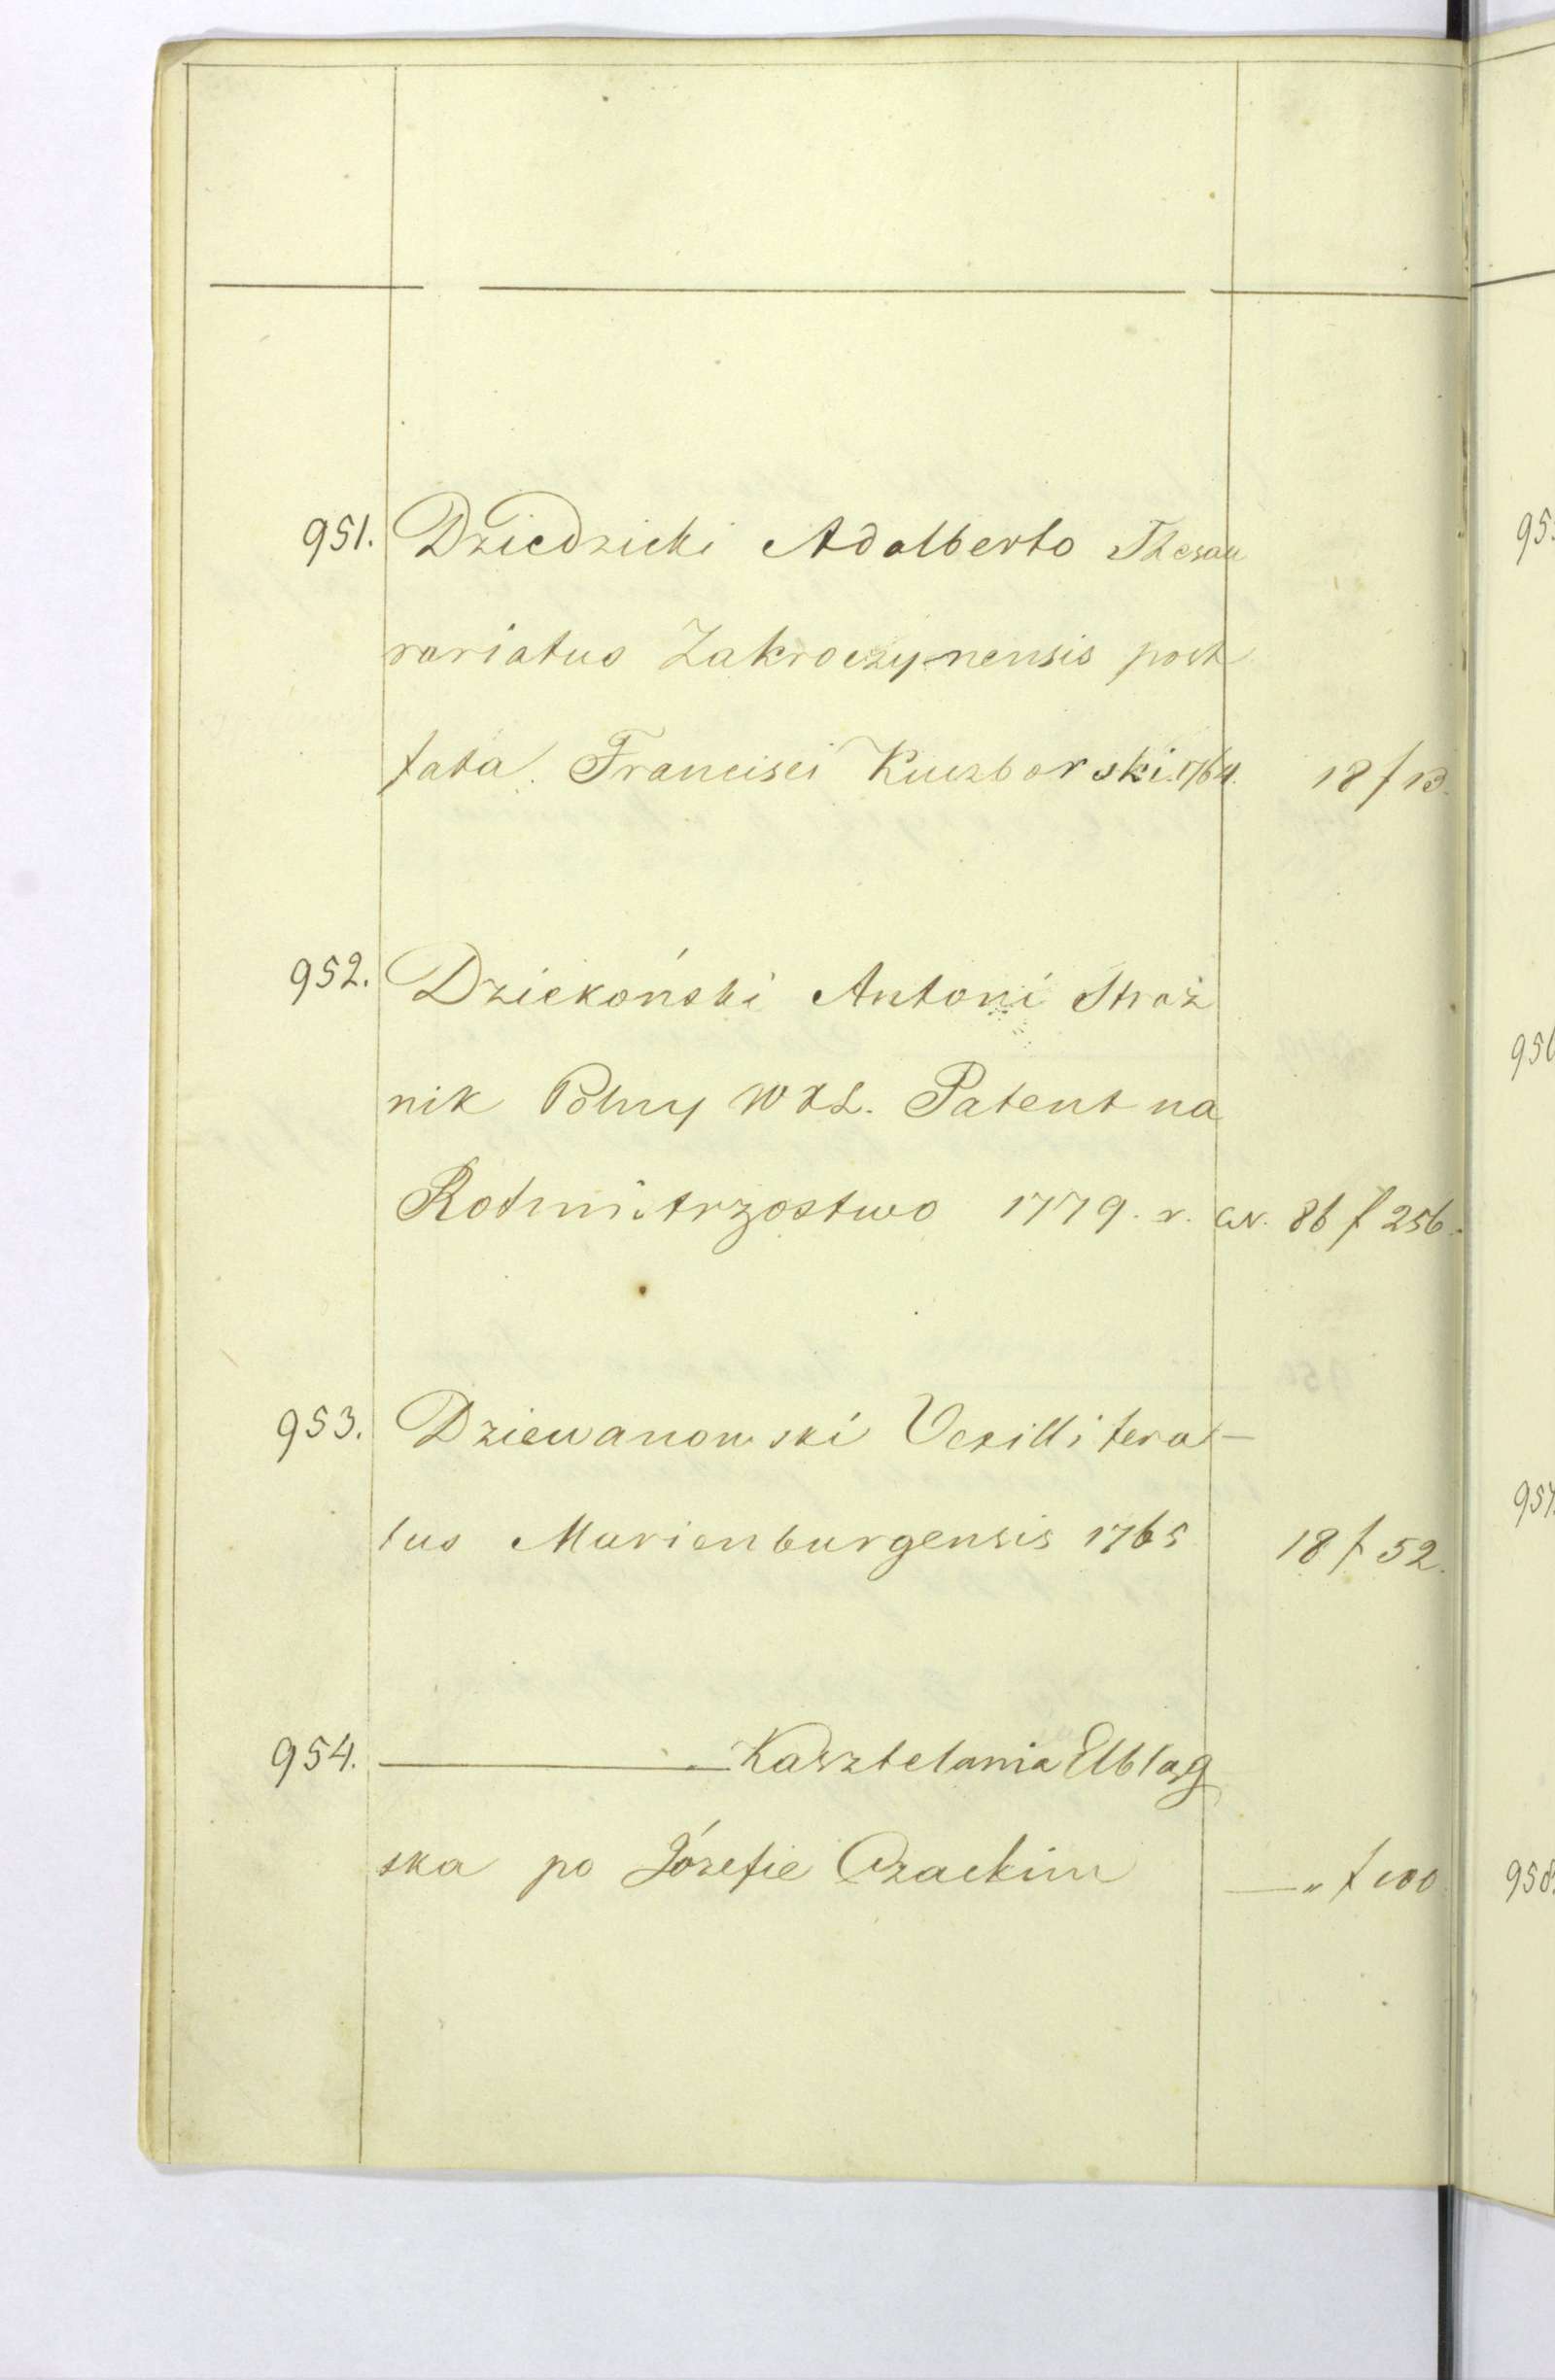 951. Dziedzicki Adalberto Thesau
rariatus Zakroczymensis post
fata Francisci Kuczborski. 1764. 18 f 13.
952. Dziekoński Antoni Straż
nik Polny WXL. Patent na
Rotmistrzostwo 1779. r. 86 f 256.
953. Dziewanowski Vexilliferat-
tus Marienburgensis 1765 18 f 52.
954. — Kasztelania Elbląg
ska po Józefie Czackim —„ f 100
95
956
957.
958.